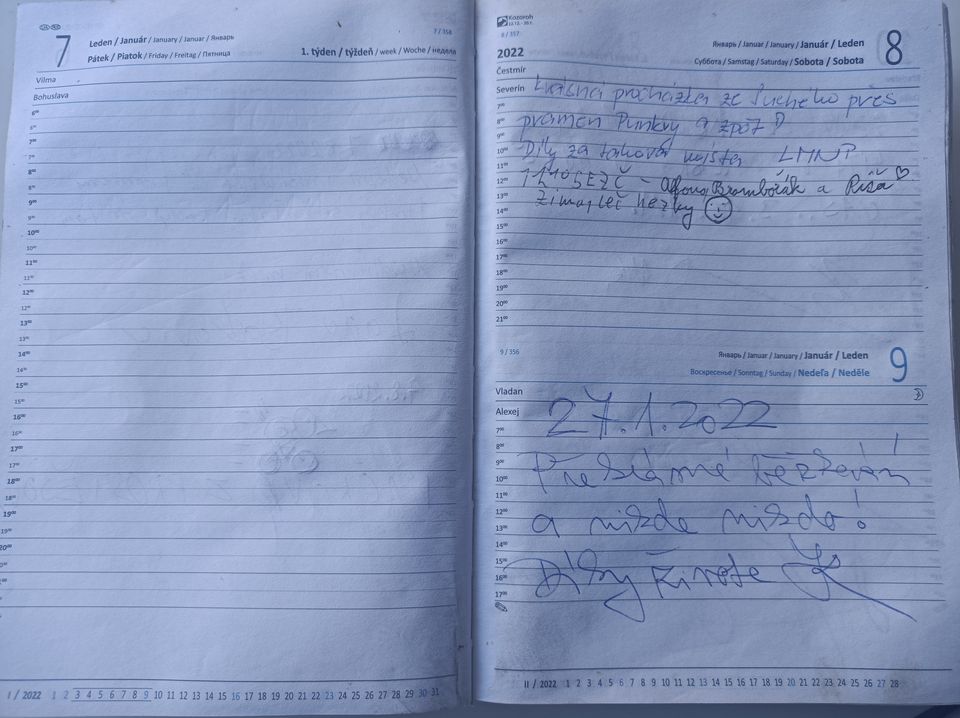 7
Leden / Január / January / Januar / Январь
Pátek / Piatok / Friday / Freitag / Пятница
7 / 358
1. týden / týždeň / week / Woche / неделя
Vilma
Bohuslava
6⁰⁰
6³⁰
7⁰⁰
7³⁰
8⁰⁰
8³⁰
9⁰⁰
9³⁰
10⁰⁰
10³⁰
11⁰⁰
11³⁰
12⁰⁰
12³⁰
13⁰⁰
13³⁰
14⁰⁰
14³⁰
15⁰⁰
15³⁰
16⁰⁰
16³⁰
17⁰⁰
17³⁰
18⁰⁰
18³⁰
19⁰⁰
19³⁰
20⁰⁰
I / 2022 1 2 3 4 5 6 7 8 9 10 11 12 13 14 15 16 17 18 19 20 21 22 23 24 25 26 27 28 29 30 31
Kozoroh
22.12. - 20.1.
8 / 357
2022
Январь / Januar / January / Január / Leden
Суббота / Samstag / Saturday / Sobota / Sobota
8
Čestmír
Severín
Krásná procházka ze Suchého přes
pramen Punkvy a zpět :)
Díky za taková místa LMNP
- Brambořák a Ríša
Zima, leč hezky
7⁰⁰
8⁰⁰
9⁰⁰
10⁰⁰
11⁰⁰
12⁰⁰
13⁰⁰
14⁰⁰
15⁰⁰
16⁰⁰
17⁰⁰
18⁰⁰
19⁰⁰
20⁰⁰
21⁰⁰
9 / 356
Январь / Januar / January / Január / Leden
Воскресенье / Sonntag / Sunday / Nedeľa / Neděle
9
Vladan
Alexej
27.1.2022
Překrásné běžkování
a nikde nikdo!
Díky živote
7⁰⁰
8⁰⁰
9⁰⁰
10⁰⁰
11⁰⁰
12⁰⁰
13⁰⁰
14⁰⁰
15⁰⁰
16⁰⁰
17⁰⁰
II / 2022 1 2 3 4 5 6 7 8 9 10 11 12 13 14 15 16 17 18 19 20 21 22 23 24 25 26 27 28